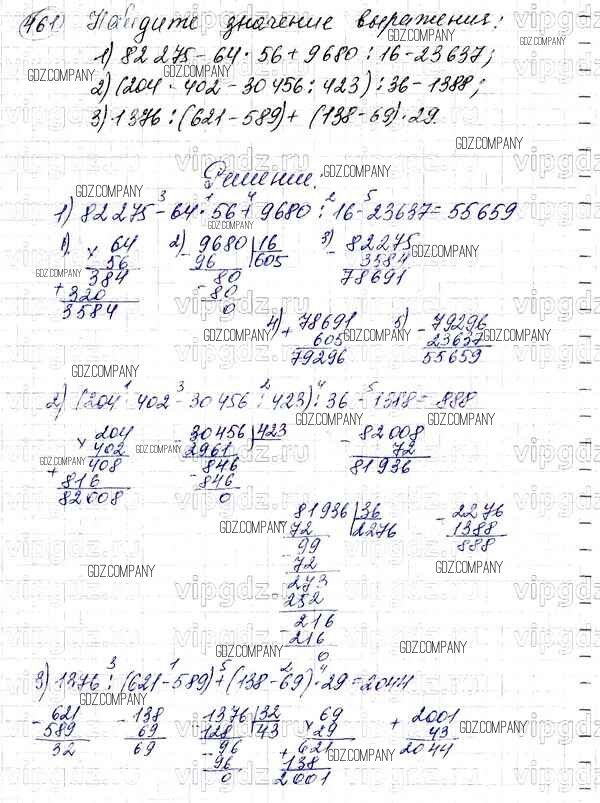 461. Найдите значение выражения:
1) 82 275 - 64 · 56 + 9680 : 16 - 23637;
2) (204 · 402 - 30 456 : 423) : 36 - 1388;
3) 1376 : (621 - 589) + (138 - 69) · 29.
Решение.
1) 82 275 - 64 · 56 + 9680 : 16 - 23637 = 55659
3 1 4 2 5
1) × 64
56
384
+ 320
3584
2) 9680 | 16
- 96 | 605
80
- 80
0
3) - 82275
3584
78691
4) + 78691
605
79296
5) - 79296
23637
55659
2) (204 · 402 - 30 456 : 423) : 36 - 1388 = 888
1 3 2 4 5
× 204
402
408
+ 816
82008
- 30456 | 423
2961
- 846
846
0
- 82008
72
81936
81936 | 36
- 72 | 2276
99
- 72
273
- 252
216
- 216
0
- 2276
1388
888
3) 1376 : (621 - 589) + (138 - 69) · 29 = 2044
3 1 5 2 4
- 621
589
32
- 138
69
69
1376 | 32
- 128 | 43
96
- 96
0
× 69
29
+ 621
138
2001
+ 2001
43
2044
GDZ.COMPANY
vipgdz.ru